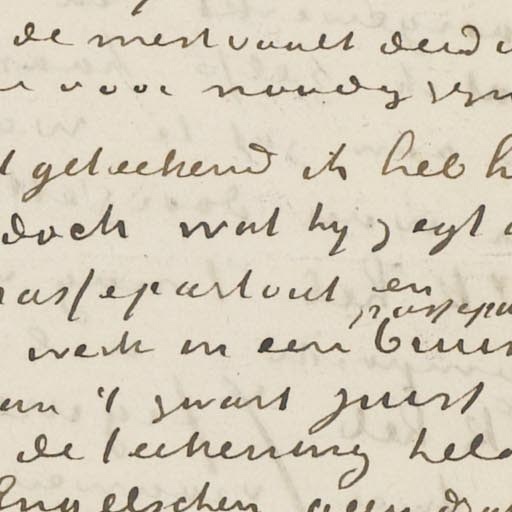 de mestvaalt deed
voor noodig zyn
geteekend ik heb h
doch wat hy zegt
passepartout en
passepar
werk in een bruin
van 't zwart juist
de teekening held
Engelschen